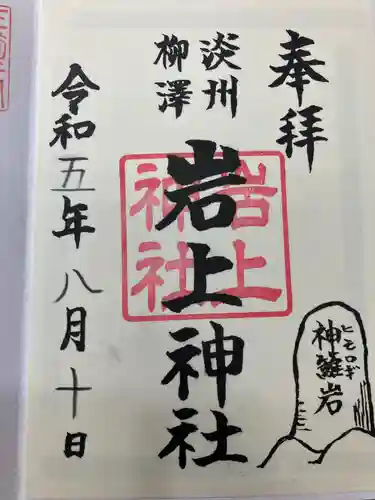 奉拝
淡州
柳澤
岩上神社
岩上
神社
令和五年八月十日
ヒモロギ
神籬岩